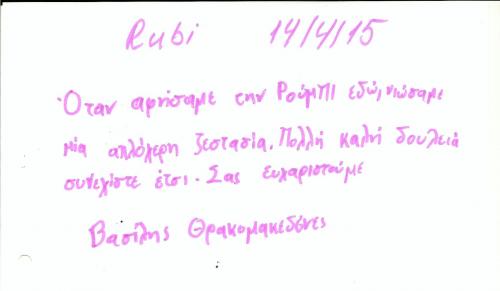 Rubi 14/4/15
Όταν αφήσαμε την Ρούμπι εδώ, νιώσαμε
μία απλόχερη ζεστασία. Πολλή καλή δουλειά
συνεχίστε έτσι. Σας ευχαριστούμε
Βασίλης Θρακομακεδόνες